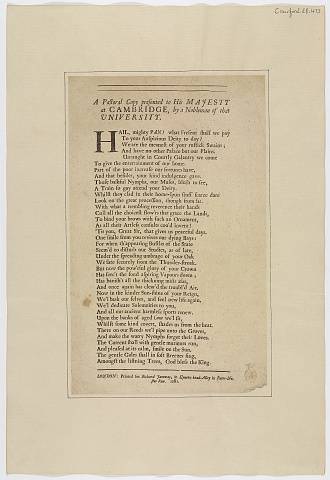 Crawford EB.433
A Pastoral Copy presented to His MAJESTY
at CAMBRIDGE, by a Nobleman of that
UNIVERSITY.
HAIL, mighty PAN! what Present shall we pay
To your Auspicious Deity to day?
We are the meanest of your rustick Swains;
And have no other Palace but our Plains:
Untaught in Courtly Galantry we come
To give the entertainment of our home.
Part of the poor increase our fortunes have,
And that besides, your kind indulgence gave.
Those bashful Nymphs, our Muses, blush to see,
A Train so gay attend your Deity.
Whilst they clad in their home-spun stuff
Look on the great procession, though from far.
With what a trembling reverence their hands
Cull all the choicest flow'rs that grace the Lands,
To bind your brows with such an Ornament,
As all their Artless counsels could invent!
'Tis you, Great Sir, that gives us peaceful days.
One smile from you revives our dying Bays:
For when th'appearing Bustles of the State
Seem'd to disturb our Studies, as of late,
Under the spreading umbrage of your Oak
We sate securely from the Thunder-stroak.
But now the pow'rful glory of your Crown
Has sent the fond aspiring Vapours down;
Has banish'd all the thickning mists afar,
And once again has clear'd the troubl'd Air.
Now in the kinder Sun-shine of your Reign,
We'll bask our selves, and feel new life again.
We'll dedicate Solemnities to you,
And all our ancient harmless sports renew.
Upon the banks of aged we'll sit,
Whilst some kind covert, shades us from the heat.
There on our Reeds we'll pipe unto the Groves,
And make the warey Nymphs forget their Loves.
The Current shall with gentle murmurs run,
And pleased at its calm, smile on the Sun.
The gentle Gales shall in soft Breezes sing,
Amongst the listning Trees, God bless the King.
LONDON: Printed for Richard Janeway, in Queens-head-Alley in Pater-Noster
Row. 1681.